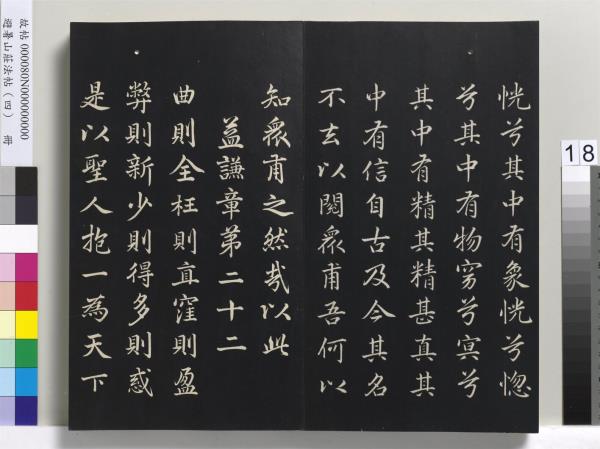 恍兮其中有象恍兮惚
兮其中有物窈兮冥兮
其中有精其精甚真其
中有信自古及今其名
不去以閱眾甫吾何以
知眾甫之然哉以此
益謙章第二十二
曲則全枉則直窪則盈
弊則新少則得多則惑
是以聖人抱一為天下
故帖000080N000000000
避暑山莊法帖(四) 冊
18